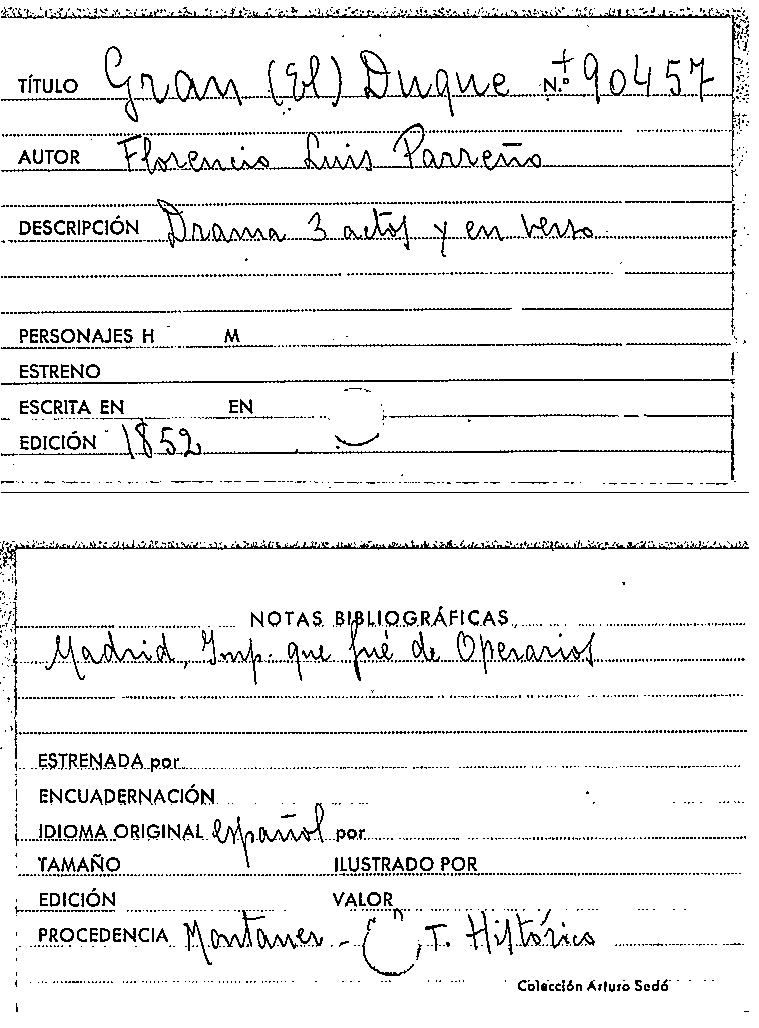 TÍTULO Gran (El) Duque N.º 90457
AUTOR Florencio Luis Parreño
DESCRIPCIÓN Drama 3 actos y en verso
PERSONAJES H M
ESTRENO
ESCRITA EN EN
EDICIÓN 1852
NOTAS BIBLIOGRÁFICAS
Madrid, Imp. que fué de Operarios
ESTRENADA por
ENCUADERNACIÓN
IDIOMA ORIGINAL español por
TAMAÑO ILUSTRADO POR
EDICIÓN VALOR
PROCEDENCIA Montaner - T. Histórico
Colección Arturo Sedó